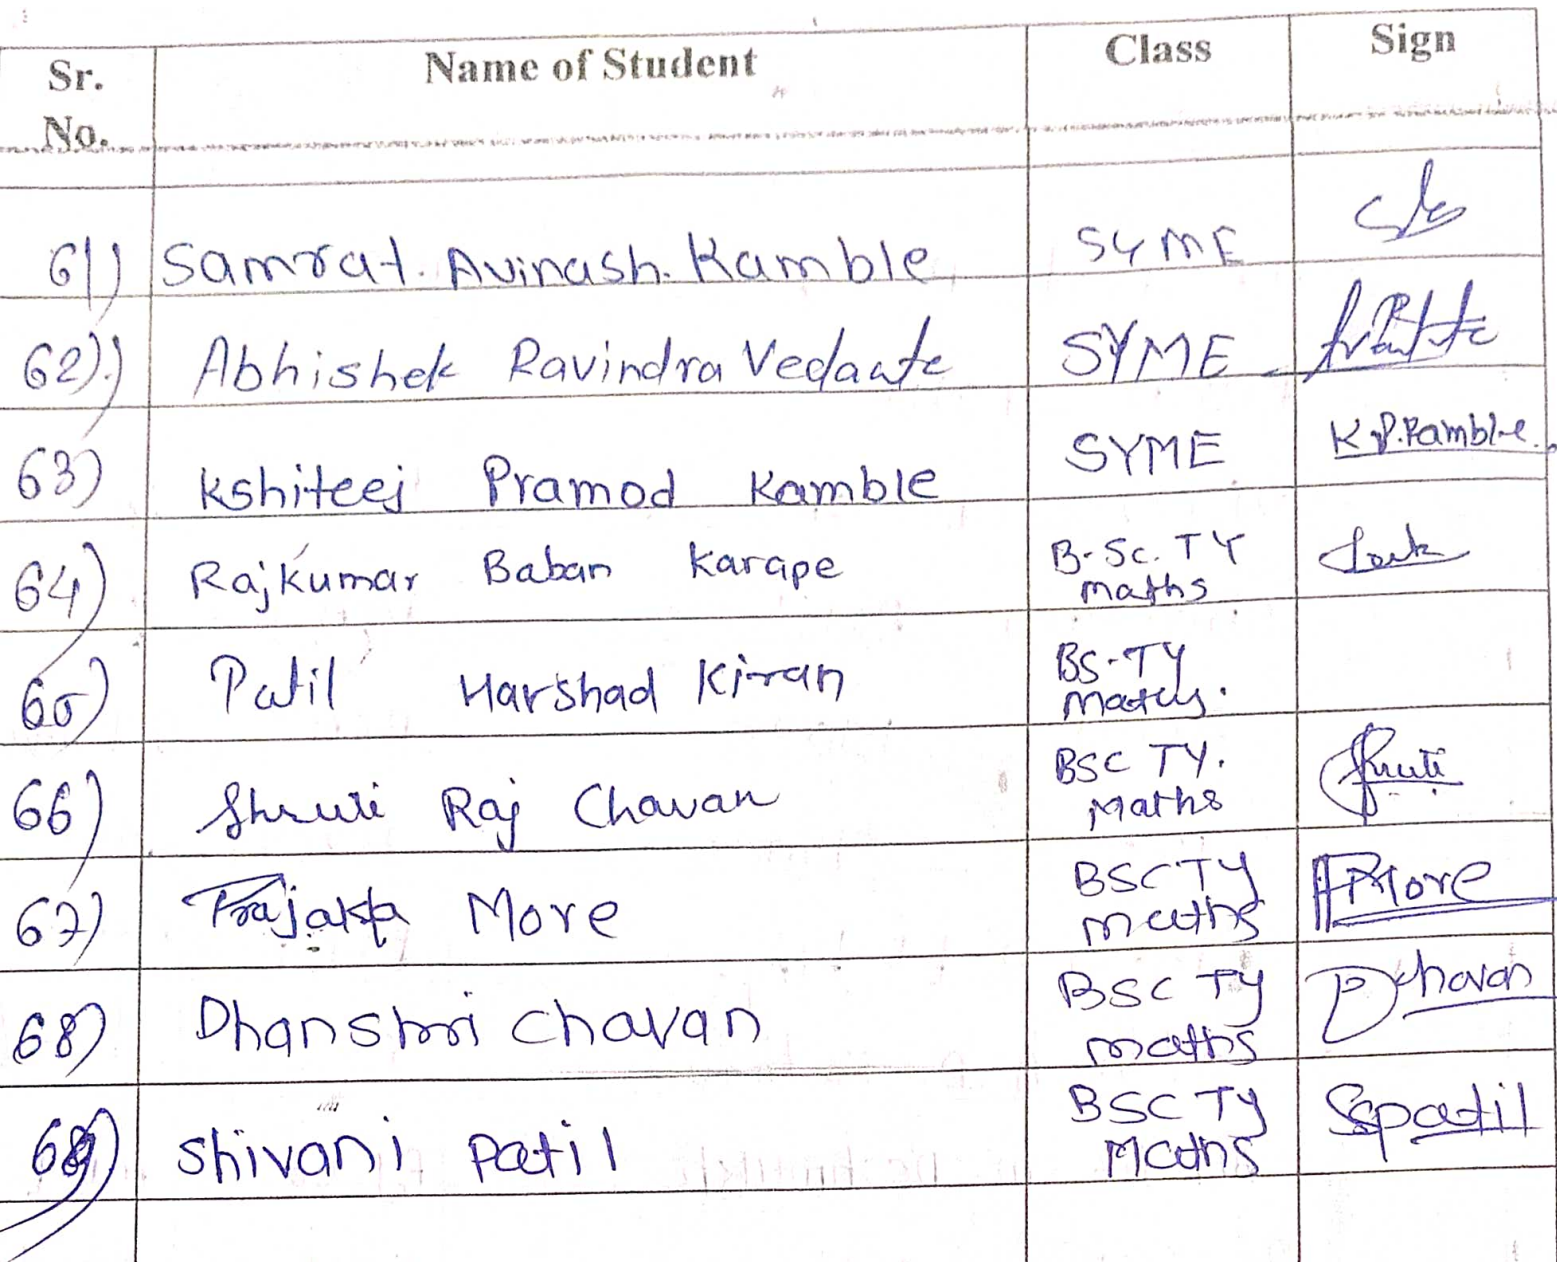 Sr. No. Name of Student Class Sign
61) Samrat. Avinash. Kamble SYME
62) Abhishek Ravindra Vedante SYME
63) Kshiteej Pramod Kamble SYME K.P.Kamble.
64) Rajkumar Baban Karape B.Sc. TY
maths
65) Patil Harshad Kiran BS-TY
Maths.
66) Shruti Raj Chavan BSC TY. Shruti
Maths
67) Prajakta More BSCTY PMore
maths
68) Dhanshri Chavan BSC TY DChavan
maths
69) Shivani Patil BSC TY SSPatil
Maths